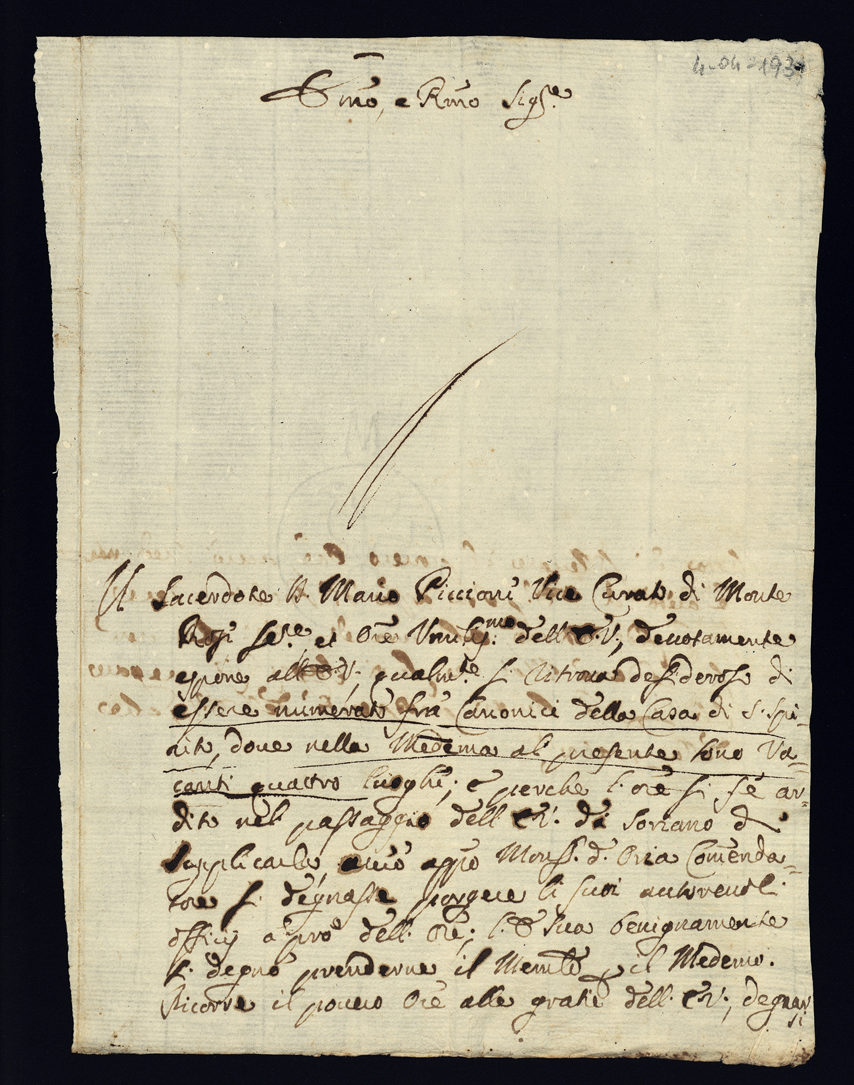 4-04-193
Emo, e Rmo Sigre
Il Sacerdote D. Mario Piccioni Vice Curato di Monte
Rosi Sere et Ore Vmilismo dell'E.V., deuotamente
espone all'E.V. qualmte si ritroua desideroso di
essere numerato frà Canonici della Casa di S. Spi-
rito, doue nella Medema al presente sono Va-
canti quattro luoghi; e perche l'ore si fè ar-
dito nel passaggio dell'E.V. di Soriano di
supplicarla, acciò appo Monsr. d'Oria Comenda-
tore si degnasse porgere li suoi autoreuoli
officij a prò dell'Ore; l'E. Sua benignamente
si degnò prenderne il Memle il Medemo.
Ricorre il pouero Ore alle gratie dell'E.V., degnar
si